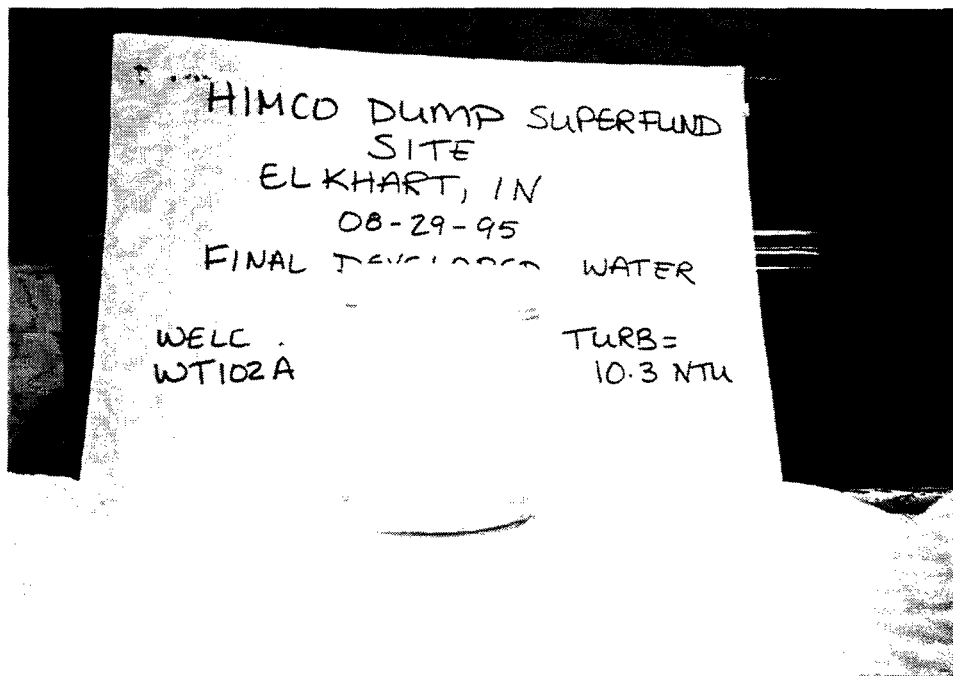 HIMCO DUMP SUPERFUND
SITE
ELKHART, IN
08-29-95
FINAL DEVELOPED WATER
WELL
WT102A
TURB=
10.3 NTU